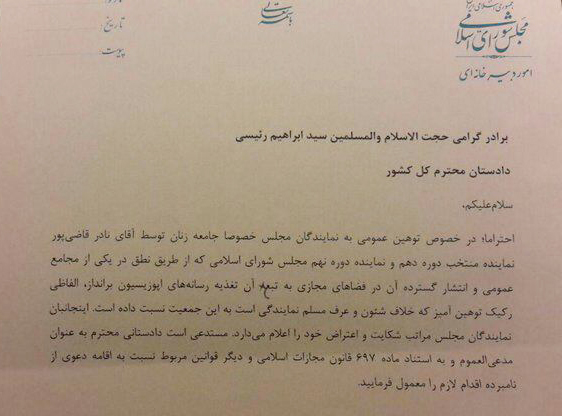 جمهوری اسلامی ایران
مجلس شورای اسلامی
امور دبیرخانه‌ای
باسمه تعالی
تاریخ
پیوست
برادر گرامی حجت الاسلام والمسلمین سید ابراهیم رئیسی
دادستان محترم کل کشور
سلام‌علیکم،
احتراما؛ در خصوص توهین عمومی به نمایندگان مجلس خصوصا جامعه زنان توسط آقای نادر قاضی‌پور
نماینده منتخب دوره دهم و نماینده دوره نهم مجلس شورای اسلامی که از طریق نطق در یکی از مجامع
عمومی و انتشار گسترده آن در فضاهای مجازی به تبعه آن تغذیه رسانه‌های اپوزیسیون برانداز، الفاظی
رکیک توهین آمیز که خلاف شئون و عرف مسلم نمایندگی است به این جمعیت نسبت داده است. اینجانبان
نمایندگان مجلس مراتب شکایت و اعتراض خود را اعلام می‌دارد. مستدعی است دادستانی محترم به عنوان
مدعی‌العموم و به استناد ماده ۶۹۷ قانون مجازات اسلامی و دیگر قوانین مربوط نسبت به اقامه دعوی از
نامبرده اقدام لازم را معمول فرمایید.